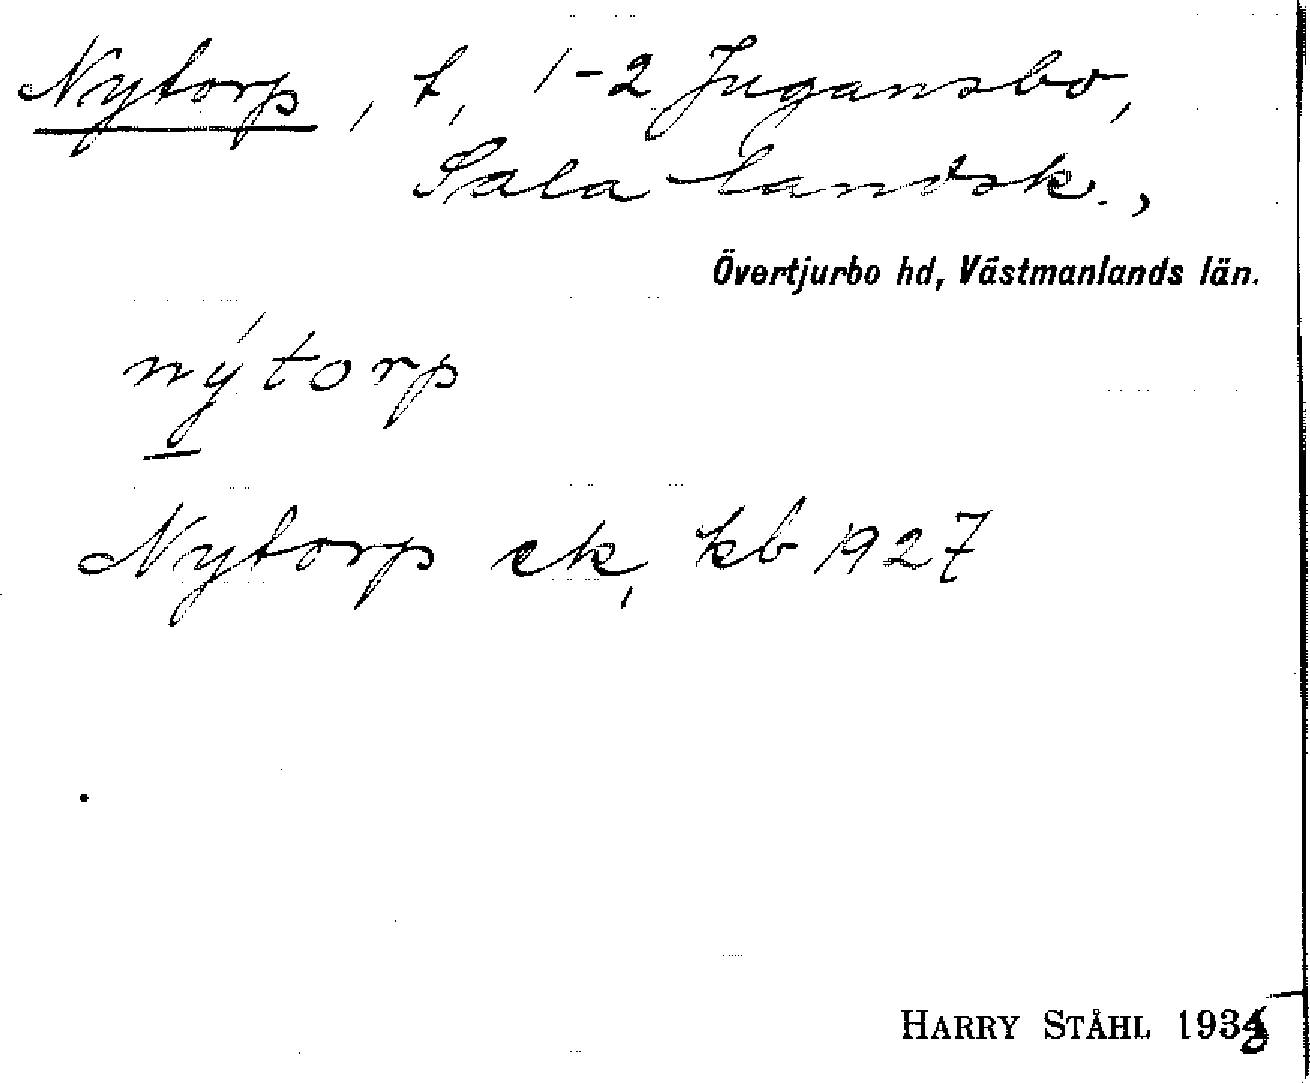 Nytorp, t, 1-2 Jugansbo,
Sala landsk.,
Övertjurbo hd, Västmanlands län.
nýtorp
Nytorp ek, kb 1927
HARRY STÅHL 1938